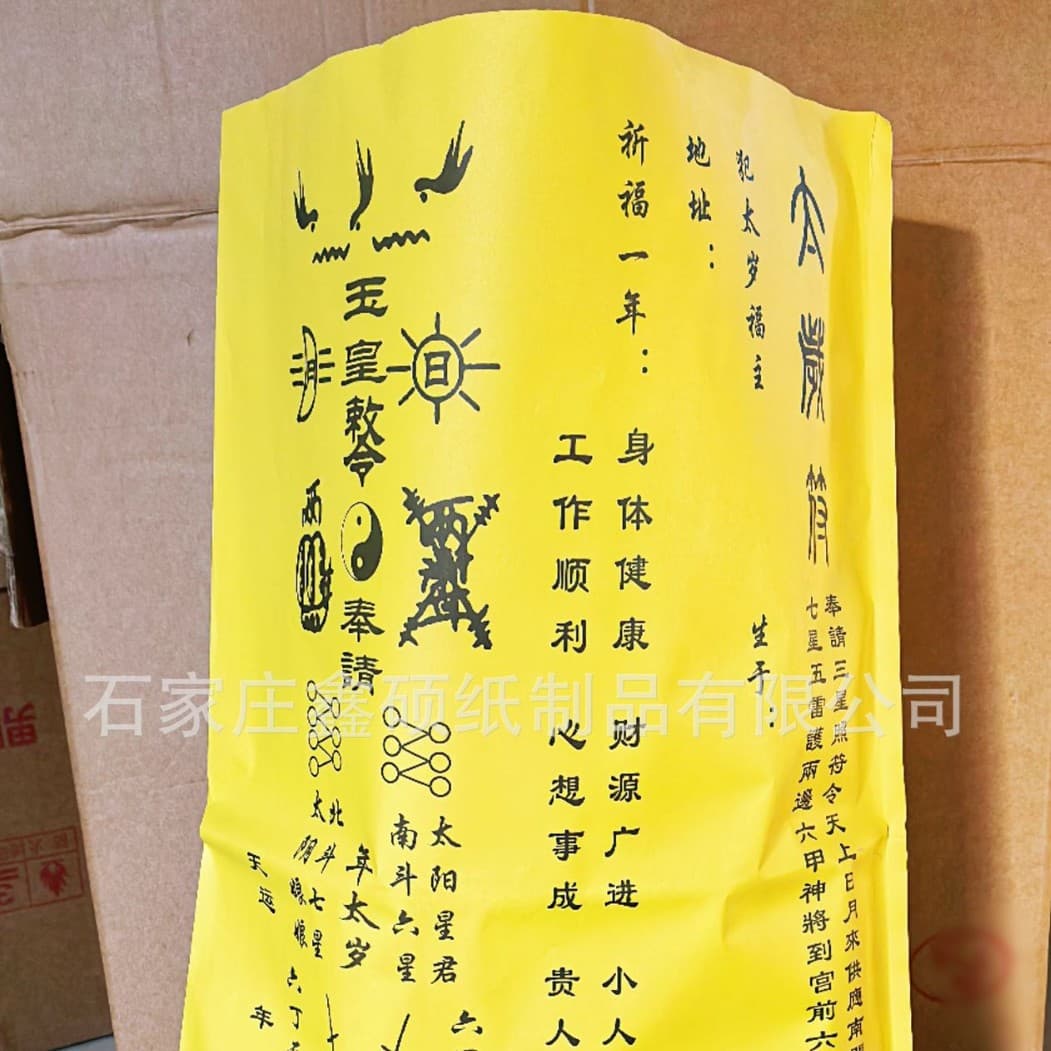 太歲符
奉請三星照符令天上日月來供應南
七星五雷護兩邊六甲神將到宫前六
犯太岁福主
生于：
地址：
祈福一年：
身体健康 财源广进 小人
工作顺利 心想事成 贵人
日
玉皇敕令
奉請
月
雨
太阳星君
南斗六星
年太岁
北斗七星
太阴娘娘
六丁
六
天运
年
石家庄鑫硕纸制品有限公司